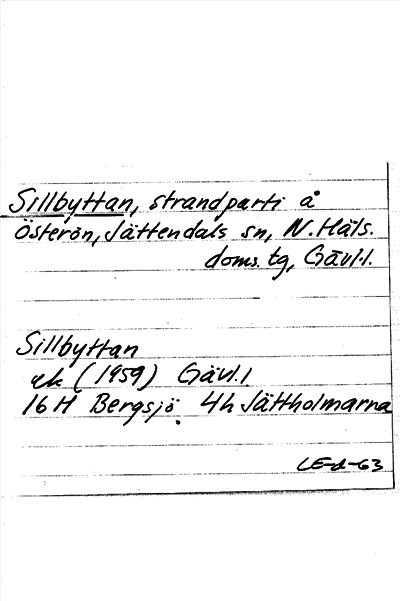 Sillbyttan, strandparti å
Österön, Jättendals sn, N. Häls.
doms. tg, Gävl.l.
Sillbyttan
ek (1959) Gävl.l
16 H Bergsjö. 4h Jättholmarna
LE-d-63